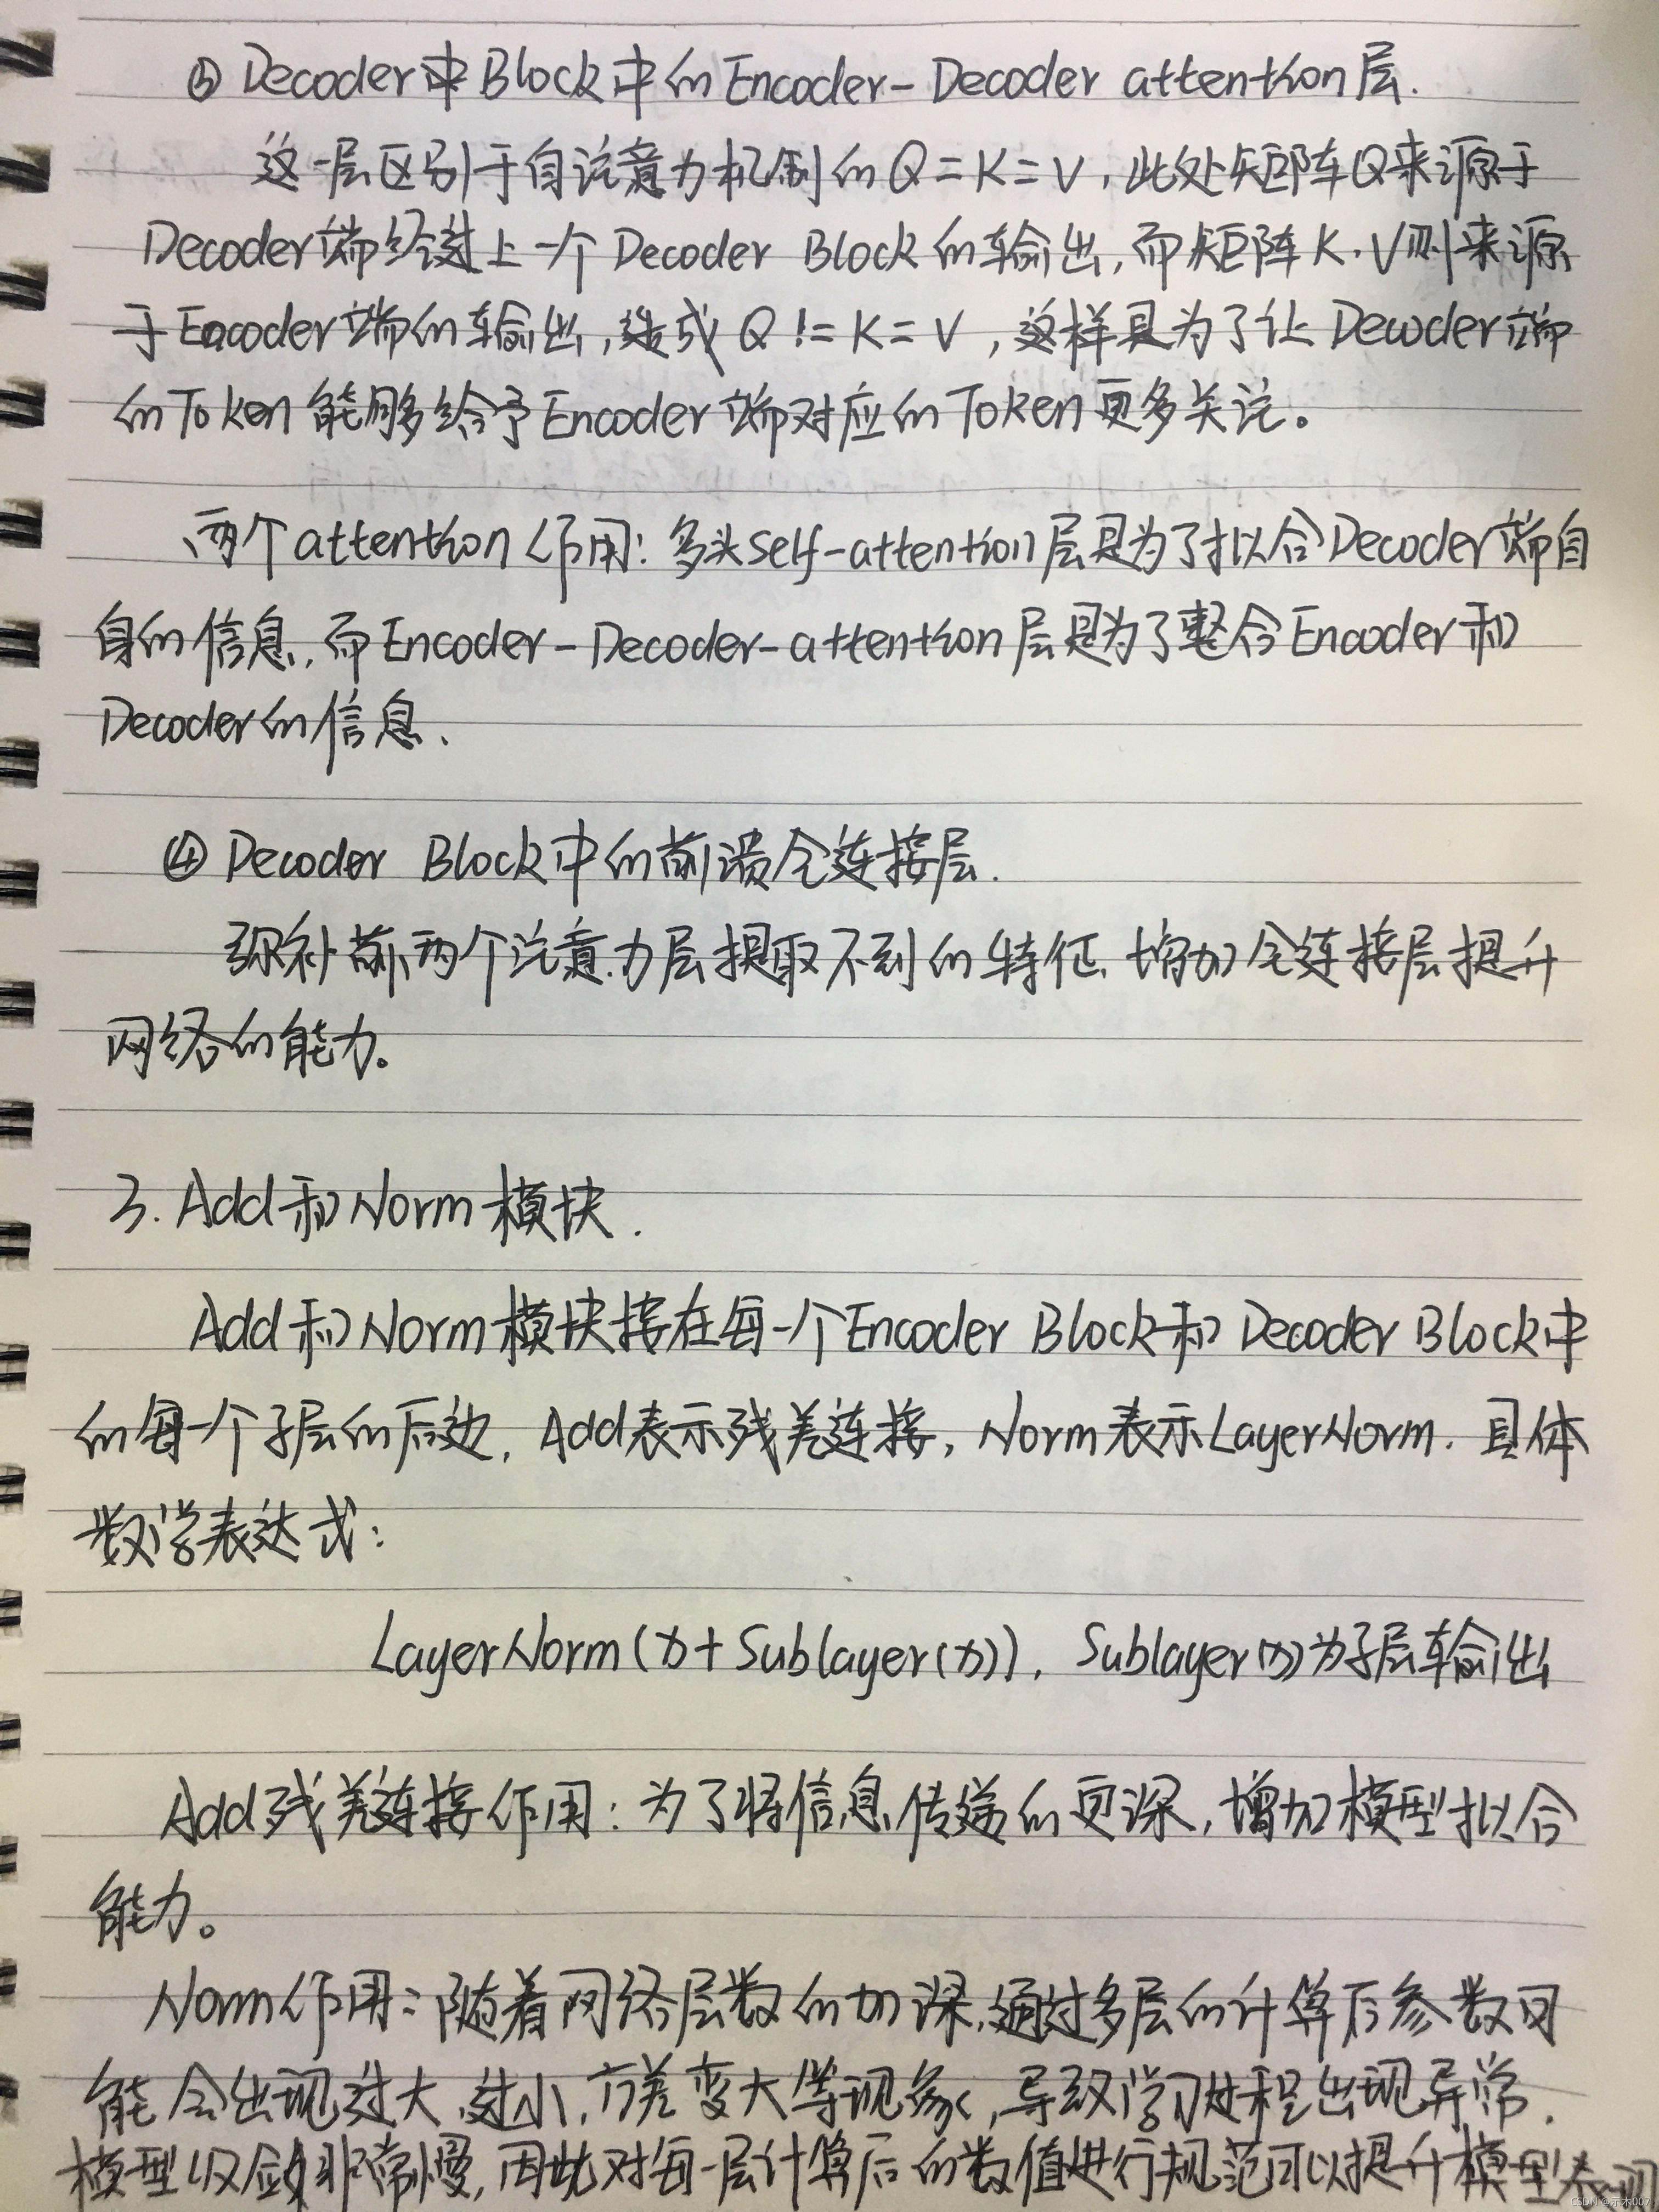 ③ Decoder中Block中的Encoder-Decoder attention层.
这一层区别于自注意力机制的Q=K=V,此处矩阵Q来源于
Decoder端经过上一个Decoder Block的输出,而矩阵K.V则来源
于Encoder端的输出,造成Q != K = V,这样是为了让Decoder端
的Token能够给予Encoder端对应的Token更多关注。
两个attention作用:多头self-attention层是为了拟合Decoder端自
身的信息,而Encoder-Decoder-attention层是为了整合Encoder和
Decoder的信息、
④ Decoder Block中的前馈全连接层.
弥补前两个注意力层提取不到的特征,增加全连接层提升
网络的能力。
3. Add和Norm模块.
Add和Norm模块接在每一个Encoder Block和Decoder Block中
的每一个子层的后边,Add表示残差连接,Norm表示LayerNorm.具体
数学表达式:
LayerNorm(x+Sublayer(x)),Sublayer(x)为子层输出
Add残差连接作用:为了将信息传递的更深,增加模型拟合
能力。
Norm作用:随着网络层数的加深,通过多层的计算后参数可
能会出现过大、过小,方差变大等现象,导致学习过程出现异常.
模型收敛非常慢,因此对每一层计算后的数值进行规范可以提升模型表现
CSDN @示木007